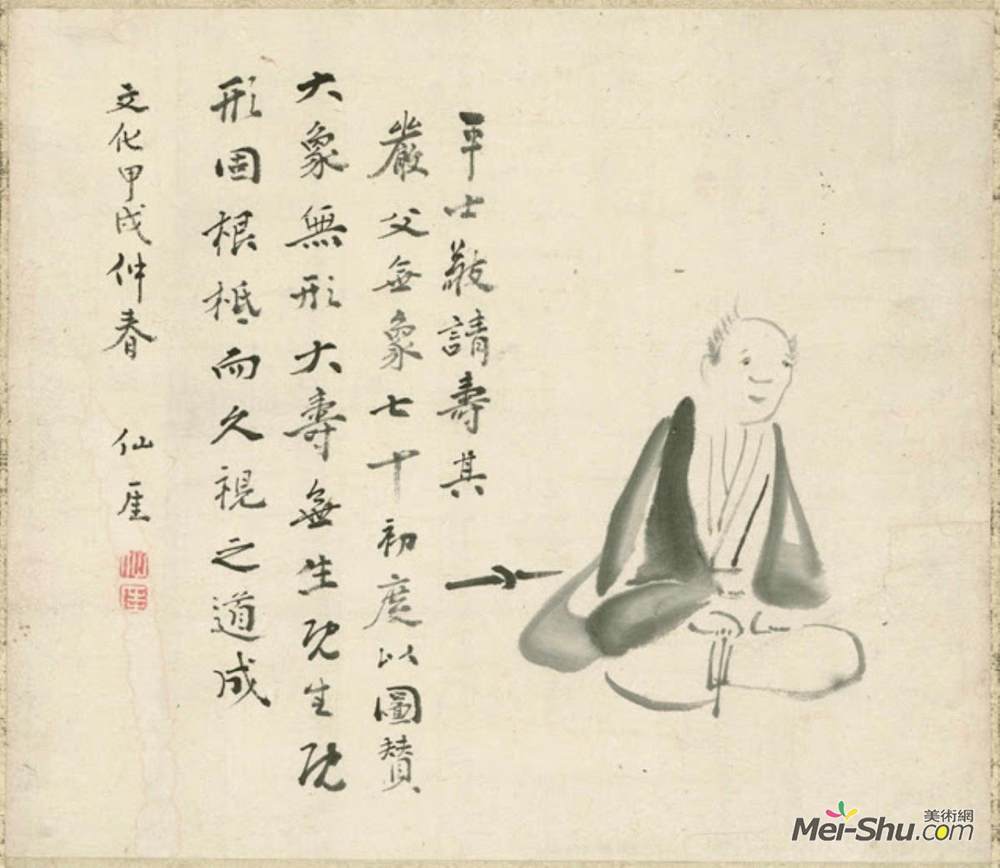 平士敬請壽其
嚴父無象七十初度以圖贊
大象無形大壽無生既生既
形固根柢而久視之道成
文化甲戌仲春 仙厓
美術網
Mei-Shu.com